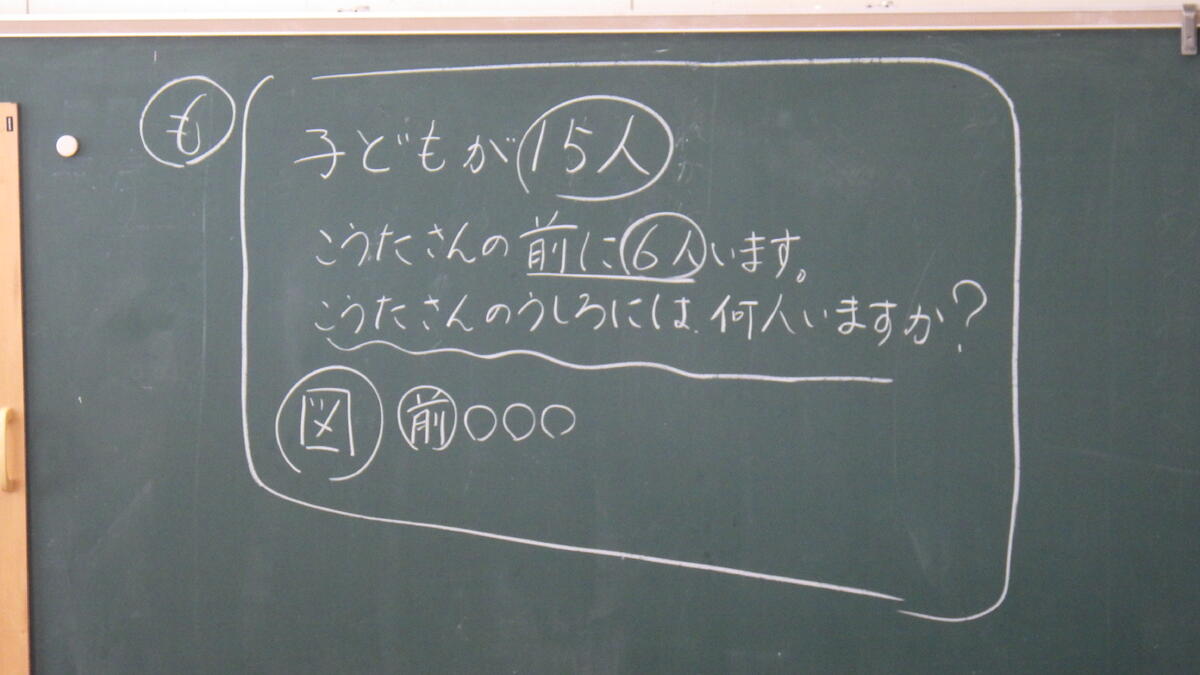 も
子どもが15人
こうたさんの前に6人います。
こうたさんのうしろには何人いますか?
図 前○○○